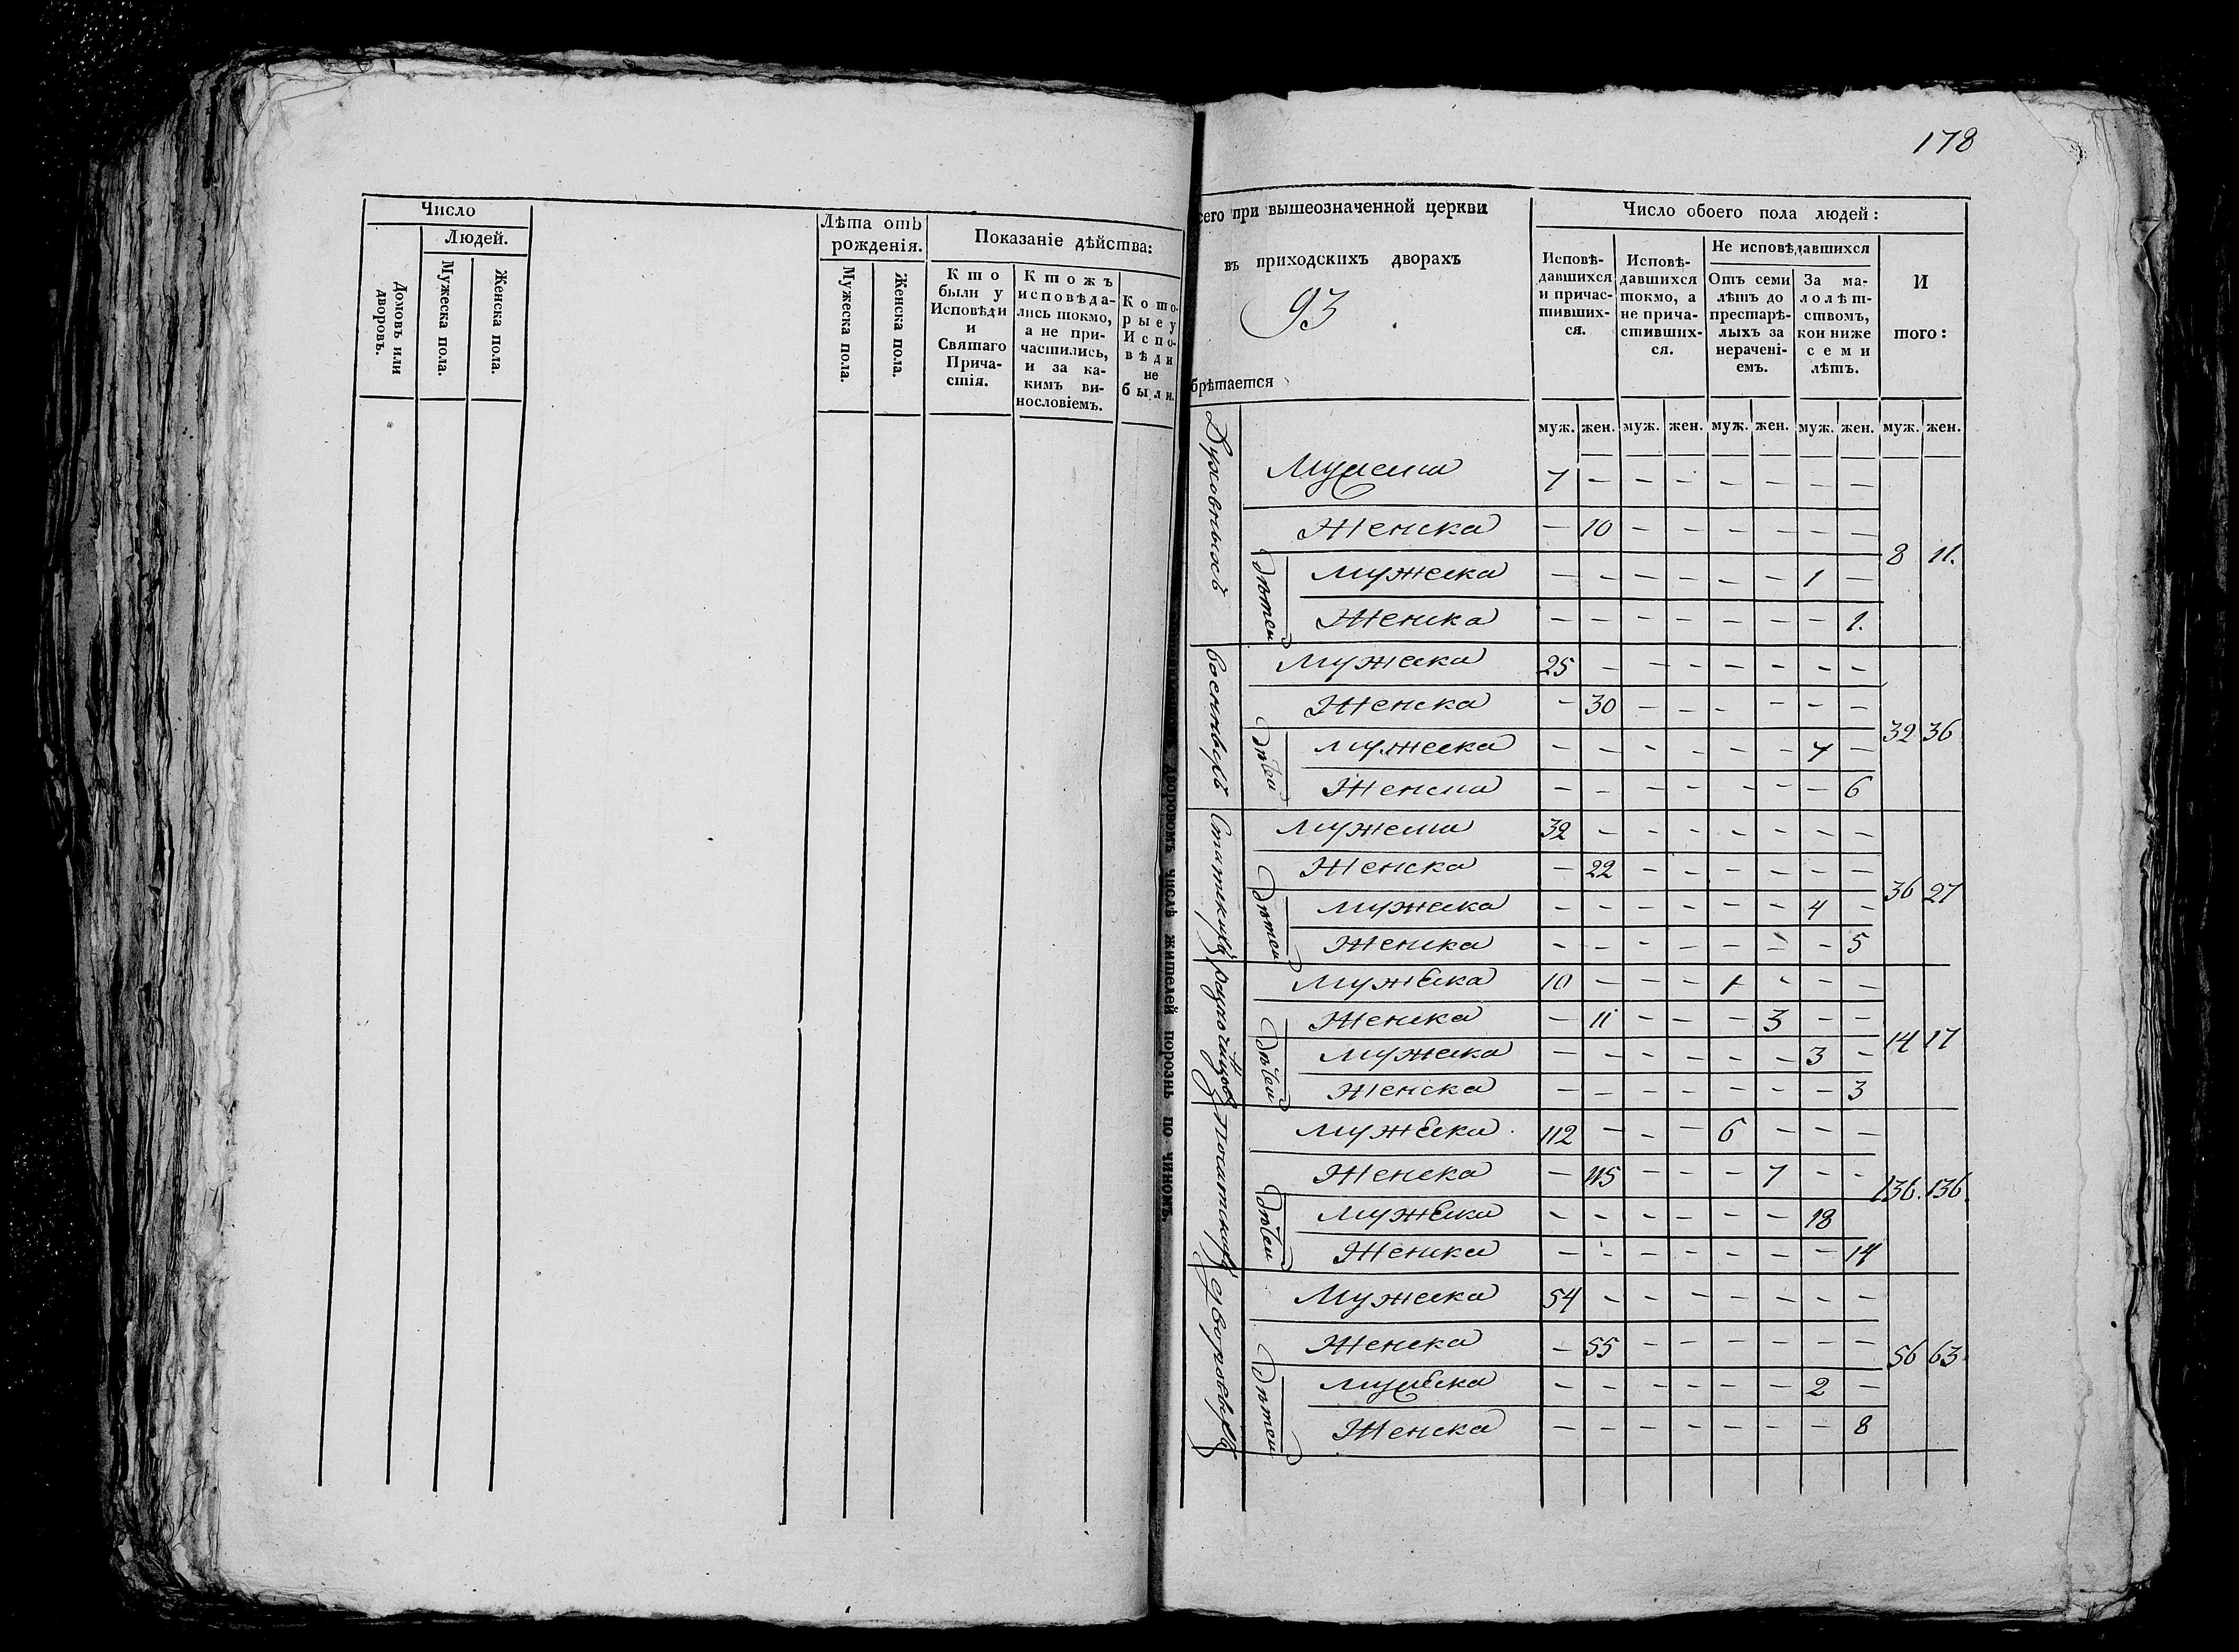 178
Число
Людей.
Домовъ или дворовъ.
Мужеска пола.
Женска пола.
Лѣта отъ
рожденія.
Мужеска пола.
Женска пола.
Показаніе дѣйства:
Кто
были у
Исповѣди
и
Святаго
Прича-
стія.
Ктожъ
исповѣда-
лись токмо,
а не при-
частились,
и за ка-
кимъ ви-
нословіемъ.
Кото-
рые у
Испо-
вѣди
не
были.
дворовомъ числѣ жителей порознь по чиномъ.
сего при вышеозначенной церкви
въ приходскихъ дворахъ
93
брѣтается
Число обоего пола людей:
Исповѣ-
давшихся
и причас-
тивших-
ся.
Исповѣ-
давшихся
токмо, а
не прича-
стивших-
ся.
Не исповѣдавшихся
Отъ семи
лѣтъ до
престарѣ-
лыхъ за
нерачені-
емъ.
За ма-
лолѣт-
ствомъ,
кои ниже
семи
лѣтъ.
И
того:
муж. жен. муж. жен. муж. жен. муж. жен. муж. жен.
Духовныхъ
Мужеска 7 – – – – – – –
Женска – 10 – – – – – –
дѣтей
Мужеска – – – – – – 1 –
Женска – – – – – – – 1.
8 11.
Военныхъ
Мужеска 25 – – – – – – –
Женска – 30 – – – – – –
дѣтей
Мужеска – – – – – – 7 –
Женска – – – – – – – 6
32 36
Статскихъ
Мужеска 32 – – – – – – –
Женска – 22 – – – – – –
дѣтей
Мужеска – – – – – – 4 –
Женска – – – – – – – 5
36 27
разночинцовъ
Мужеска 10 – – – 1 – – –
Женска – 11 – – – 3 – –
дѣтей
Мужеска – – – – – – 3 –
Женска – – – – – – – 3
14 17
Посатскихъ
Мужеска 112 – – – 6 – – –
Женска – 115 – – – 7 – –
дѣтей
Мужеска – – – – – – 18
Женска – – – – – – – 14
136. 136.
дворовыхъ
Мужеска 54 – – – – – – –
Женска – 55 – – – – – –
дѣтей
Мужеска – – – – – – 2 –
Женска – – – – – – – 8
56 63.